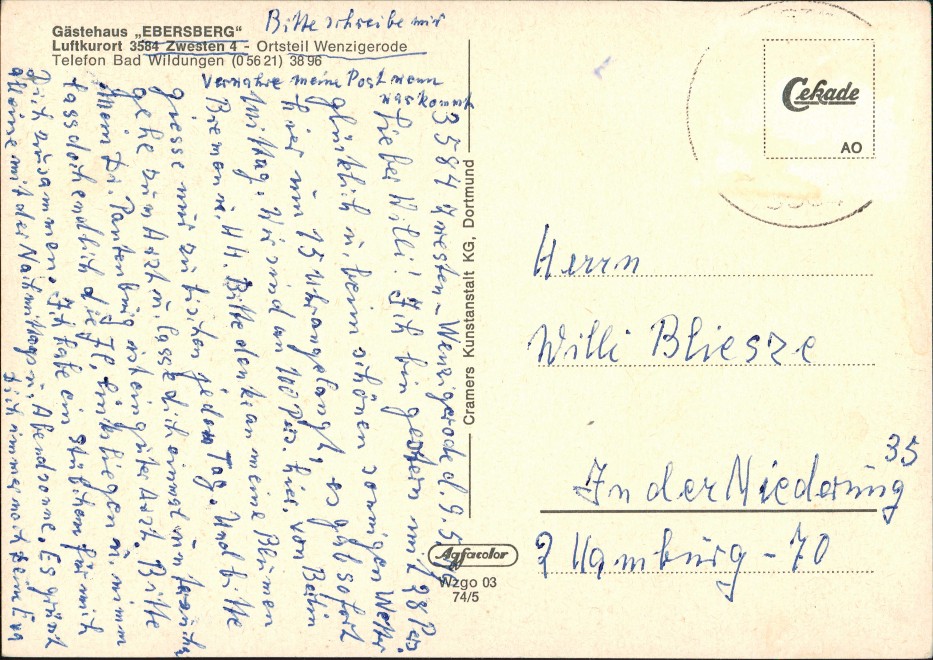 Bitte schreibe mir
Gästehaus „EBERSBERG"
Luftkurort 3584 Zwesten 4 - Ortsteil Wenzigerode
Telefon Bad Wildungen (0 56 21) 38 96
Verwahre meine Post wenn
was kommt
3584 Zwesten - Wenzigerode d. 9.5.
Lieber Willi! Ich bin gestern mit 38 Pers.
glücklich u. beim schönen sonnigen Wetter
hier um 15 Uhr angelangt, es gab sofort
Mittag. Wir sind an 100 Pers. hier, von Berlin
Bremen u. HH. Bitte denk an meine Blumen
giesse mir zu tischen jeden Tag. Und bitte
gehe zum Arzt u. lasse dich einmal
mein Dr. Pantenburg ist ein guter Arzt. Bitte
lass doch endlich die liegen u. nimm
Dich zusammen. Ich habe ein stübchen für mich
alleine mit der Nachmittag u. Abendsonne. Es grüsst
Dich immer noch
Cramers Kunstanstalt KG, Dortmund
Agfacolor
Wzgo 03
74/5
Cekade
AO
Herrn
Willi Bliesze
In der Niederung 35
2 Hamburg - 70